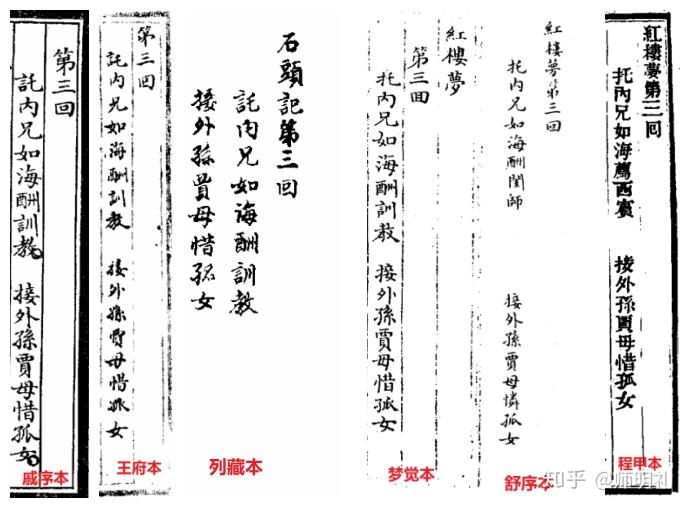 第三回
託内兄如海酬訓教 接外孫賈母惜孤女
戚序本
第三回
託内兄如海酬訓教 接外孫賈母惜孤女
王府本
石頭記第三回
託内兄如海酬訓教
接外孫賈母惜孤女
列藏本
紅樓夢
第三回
托内兄如海酬訓教 接外孫賈母惜孤女
梦觉本
紅樓夢第三回
托内兄如海酬閨師 接外孫賈母憐孤女
舒序本
紅樓夢第三回
托内兄如海薦西賓 接外孫賈母惜孤女
程甲本
知乎 @师明刘